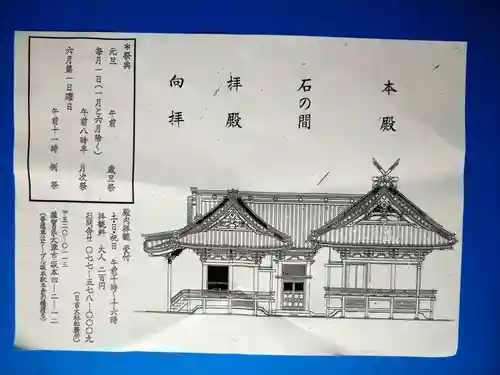 本殿
石の間
拝殿
向拝
*祭典
元旦 午前 歳旦祭
毎月一日(一月と六月除く)
午前八時半 月次祭
六月第一日曜日
午前十一時 例祭
殿内拝観 受付
土・日・祝日 午前十時〜十六時
拝観料 大人 二百円
お問合せ 〇七七-五七八-〇〇〇九
(日吉大社社務所)
〒五二〇-〇一一三
滋賀県大津市坂本四-二-一二